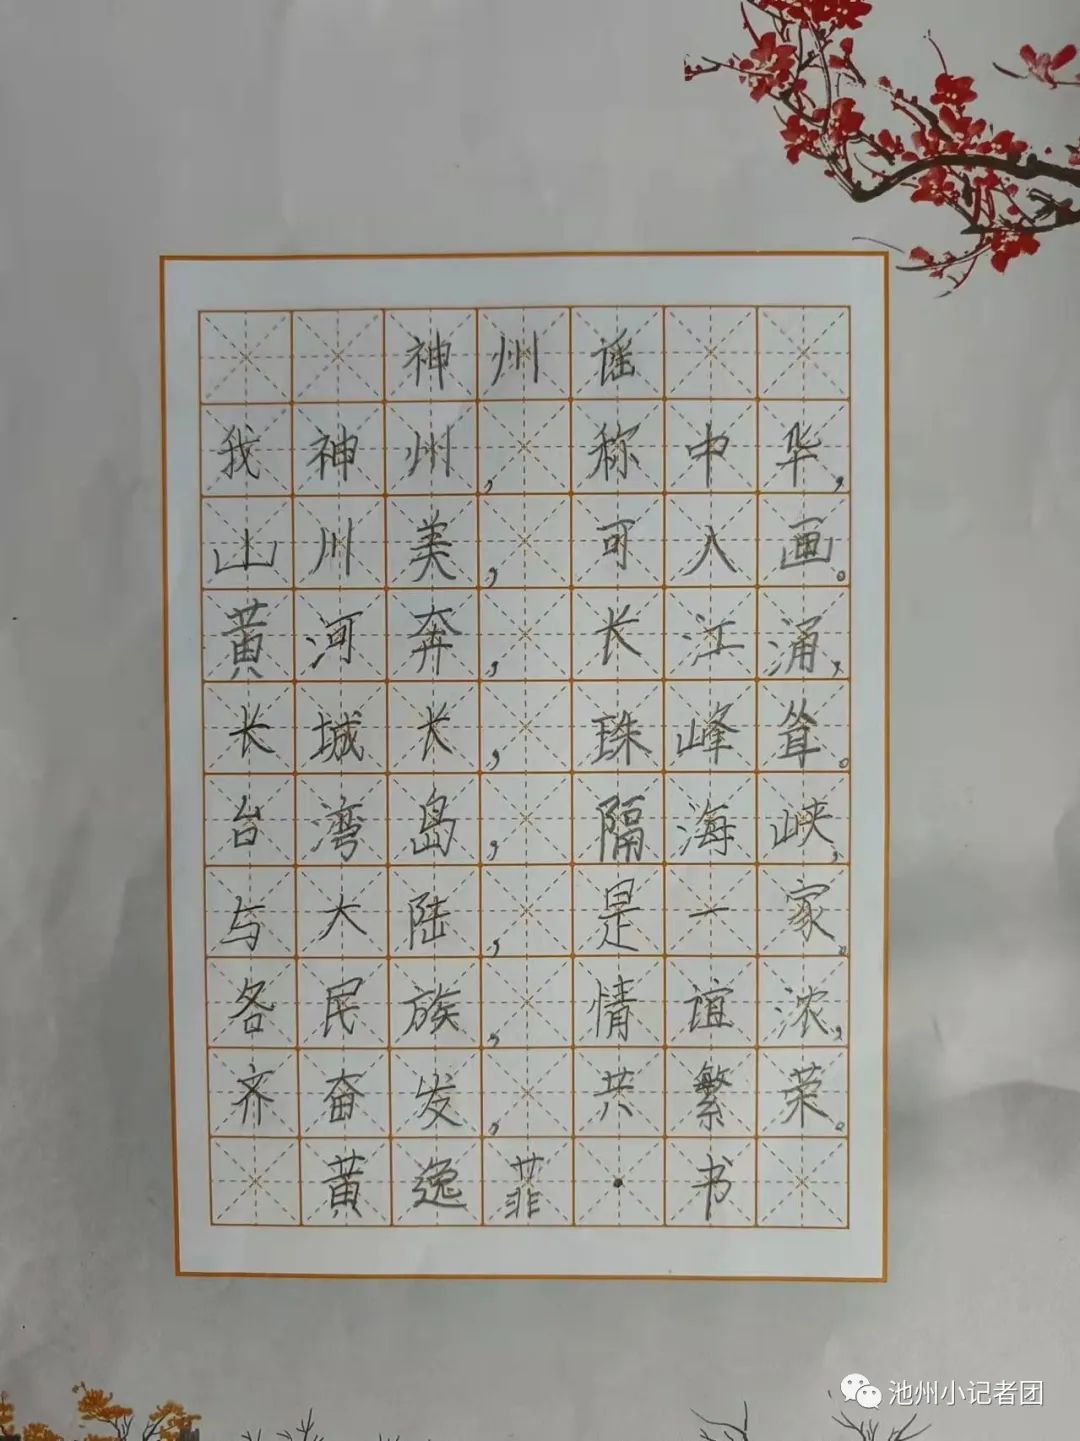 神州谣
我神州,称中华,
山川美,可入画。
黄河奔,长江涌,
长城长,珠峰耸。
台湾岛,隔海峡,
与大陆,是一家。
各民族,情谊浓,
齐奋发,共繁荣。
黄逸菲·书
池州小记者团